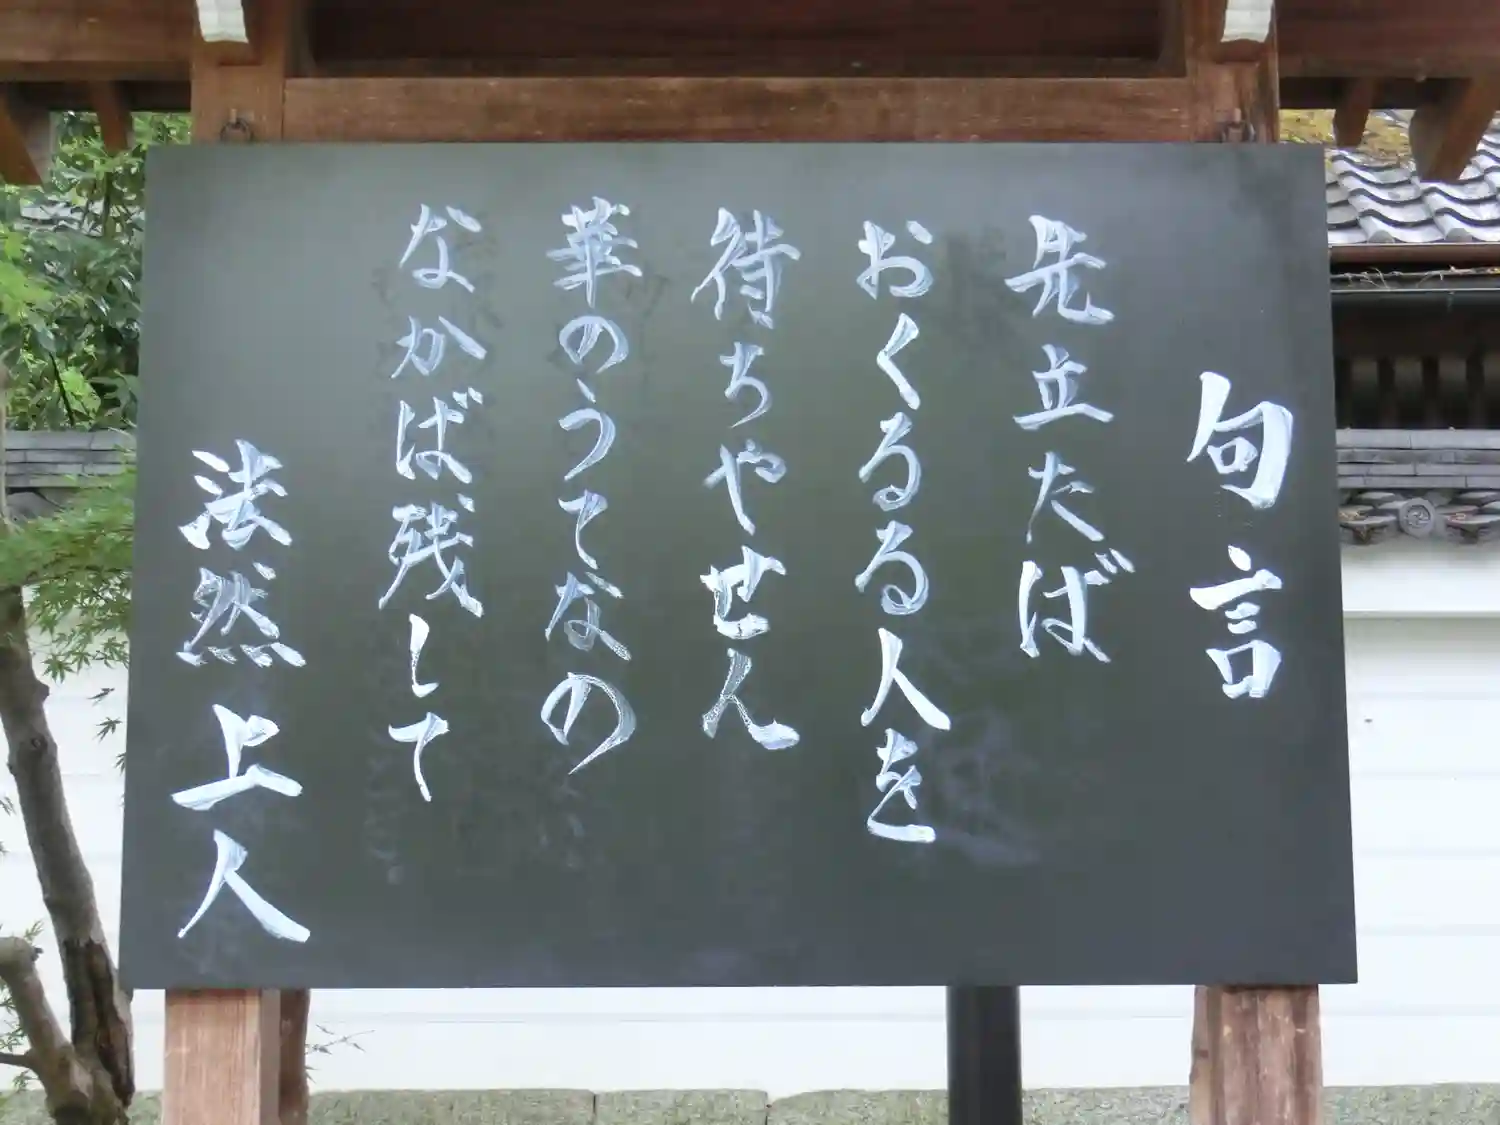 句言
先立たば
おくるる人を
待ちやせん
華のうてなの
なかば残して
法然上人